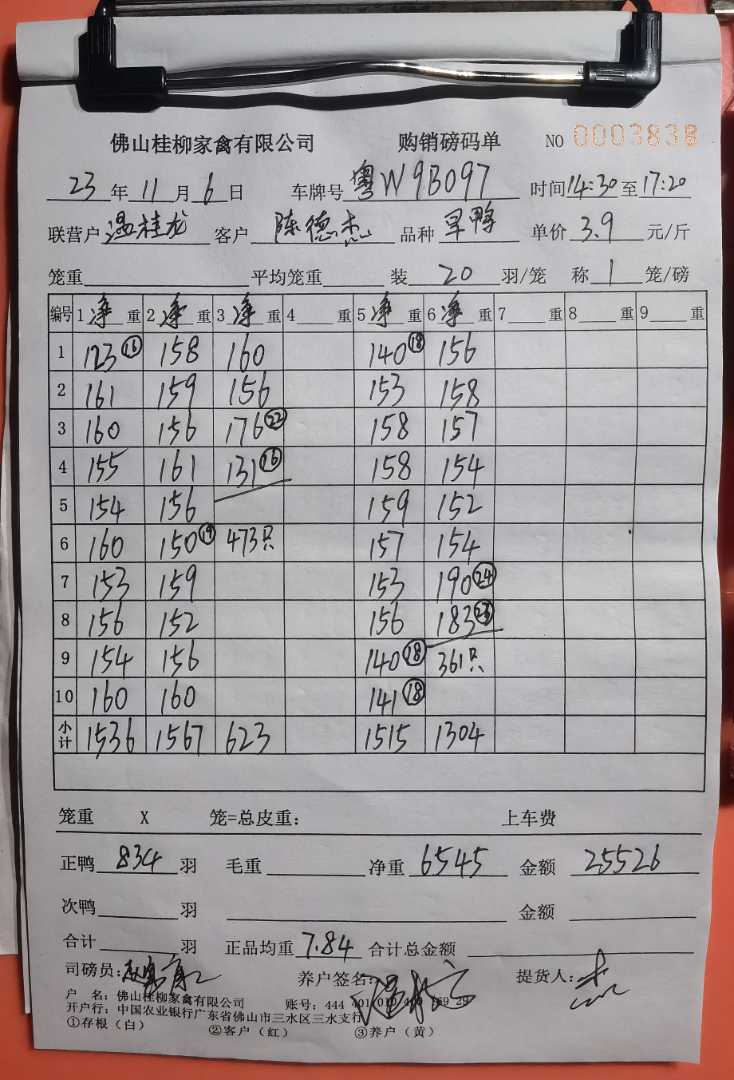 佛山桂柳家禽有限公司 购销磅码单 NO 0003838
23年11月6日 车牌号 粤W9B097 时间14:30至17:20
联营户 温桂龙 客户 陈德杰 品种 旱鸭 单价 3.9 元/斤
笼重 平均笼重 装 20 羽/笼 称 1 笼/磅
编号 1 净 重 2 净 重 3 净 重 4 重 5 净 重 6 净 重 7 重 8 重 9 重
1 123⑯ 158 160 140⑱ 156
2 161 159 156 153 158
3 160 156 176㉒ 158 157
4 155 161 131⑯ 158 154
5 154 156 159 152
6 160 150⑲ 473只 157 154
7 153 159 153 190㉔
8 156 152 156 183㉓
9 154 156 140⑱ 361只
10 160 160 141⑱
小计 1536 1567 623 1515 1304
笼重 X 笼=总皮重: 上车费
正鸭 834 羽 毛重 净重 6545 金额 25526
次鸭 羽 金额
合计 羽 正品均重 7.84 合计总金额
司磅员: 养户签名: 提货人: 杰
户 名: 佛山桂柳家禽有限公司 账号: 444
开户行: 中国农业银行广东省佛山市三水区三水支行
①存根（白） ②客户（红） ③养户（黄）